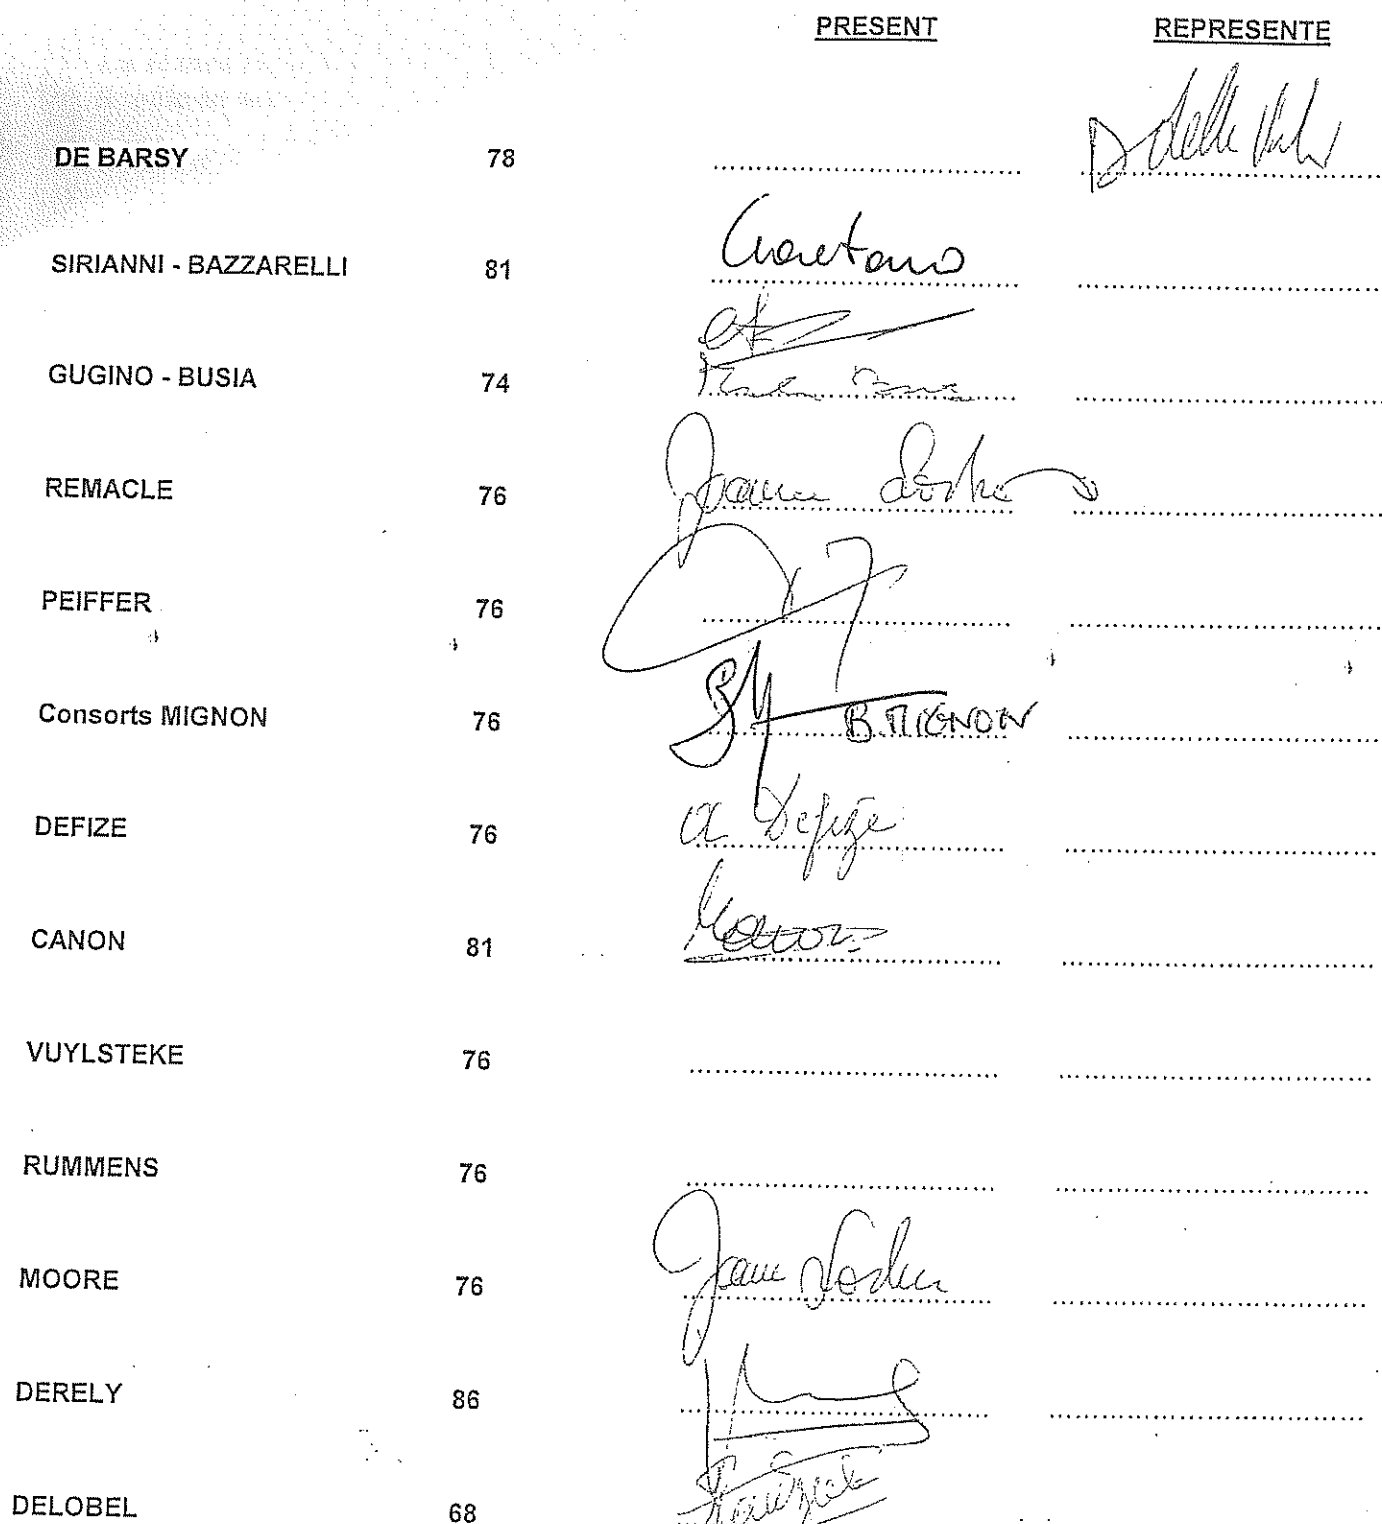 PRESENT REPRESENTE
DE BARSY 78
SIRIANNI - BAZZARELLI 81 Gaetano
GUGINO - BUSIA 74
REMACLE 76
PEIFFER 76
Consorts MIGNON 76 BM B.MIGNON
DEFIZE 76 a Defize
CANON 81
VUYLSTEKE 76
RUMMENS 76
MOORE 76
DERELY 86
DELOBEL 68